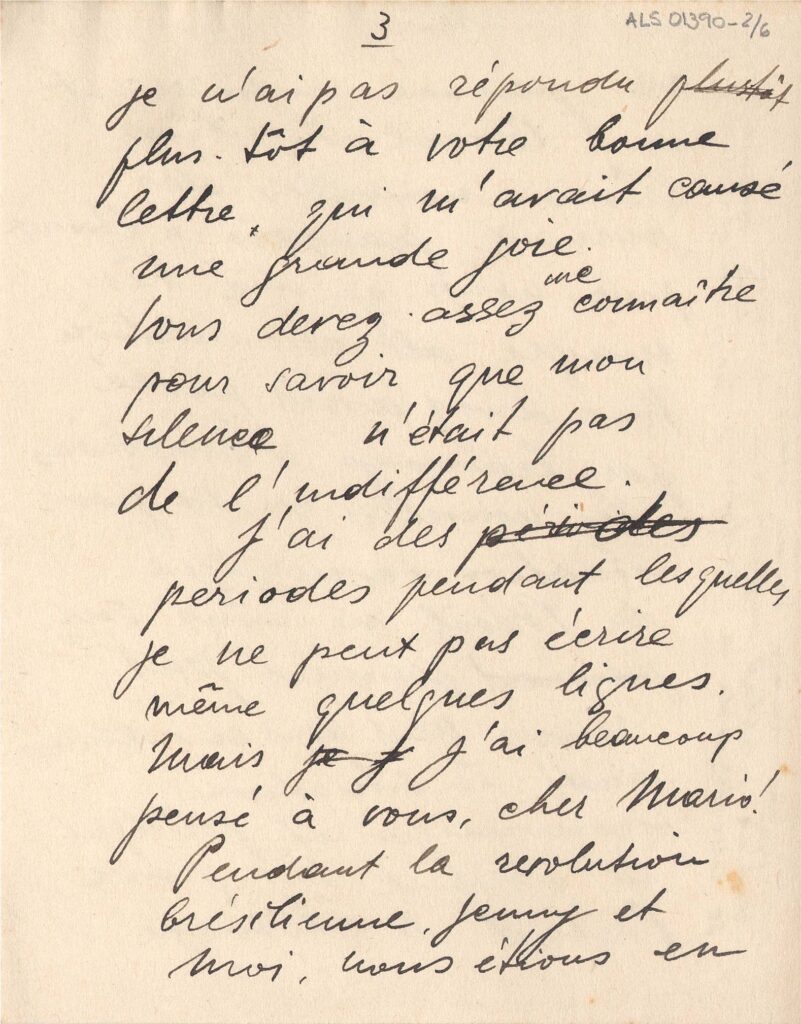 3
ALS 01390-2/6
je n'ai pas répondu plustôt
plus-tôt à votre bonne
lettre, qui m'avait causé
une grande joie.
Vous devez assez me connaître
pour savoir que mon
silence n'était pas
de l'indifférence.
J'ai des périodes
periodes pendant lesquelles
je ne peut pas écrire
même quelques lignes.
Mais je j j'ai beaucoup
pensé à vous, cher Mario!
Pendant la revolution
brésilienne, Jenny et
moi, nous étions en